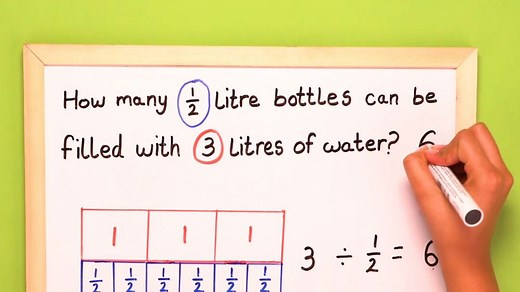 How many 1/2 Litre bottles can be
filled with 3 Litres of water? 6
1 1 1
1/2 1/2 1/2 1/2 1/2 1/2
3 ÷ 1/2 = 6